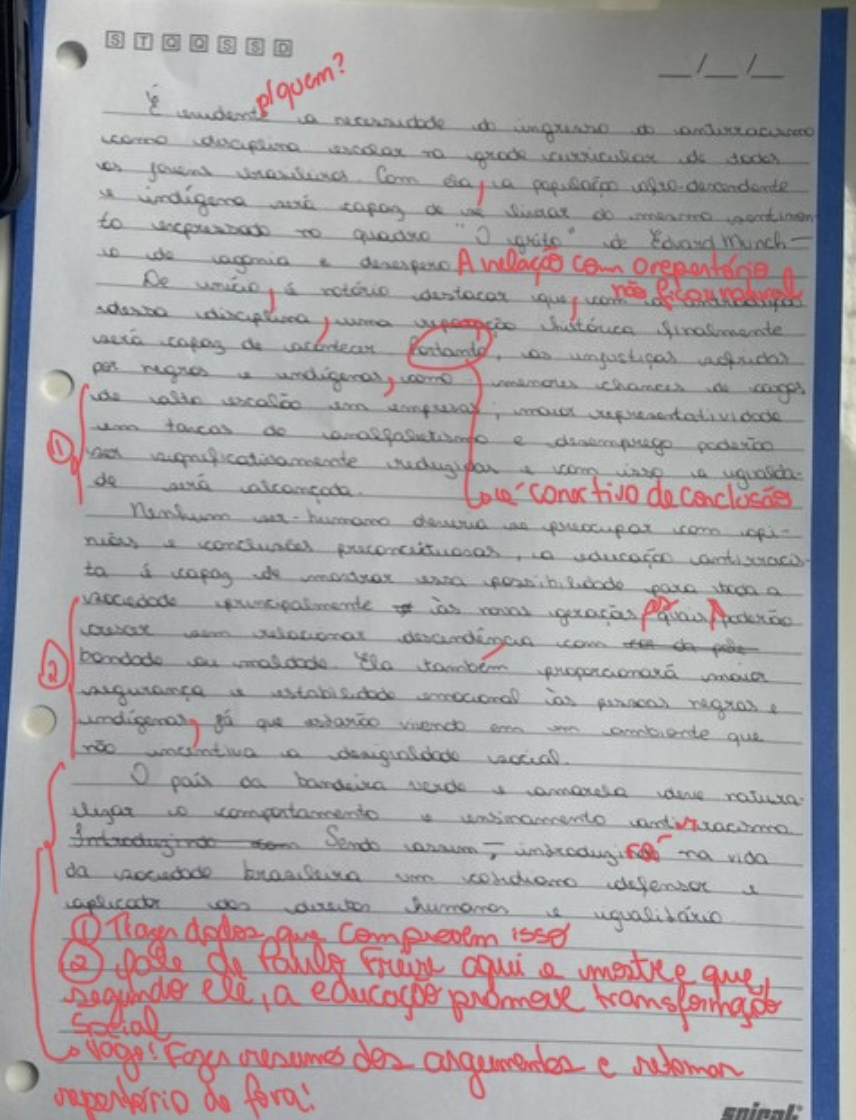 S T Q Q S S D
__/__/__
p/quem?
É evidente a necessidade do ingresso do antirracismo
como disciplina escolar na grade curricular de todos
os jovens brasileiros. Com ela, a população afro-descendente
e indígena será capaz de se livrar do mesmo sentimen-
to expressado no quadro "O grito" de Edvard Munch —
o de agonia e desespero. A relação com o repertório
não ficou natural!
De início, é notório destacar que, com a introdução
dessa disciplina, uma reparação histórica finalmente
será capaz de acontecer. Portanto, as injustiças sofridas
por negros e indígenas, como menores chances de cargos
de alto escalão em empresas, maior representatividade
em taxas de analfabetismo e desemprego poderão
ser significativamente reduzidas e com isso a igualda-
de será alcançada.
① 
↳ é conectivo de conclusão
Nenhum ser-humano deveria se preocupar com opi-
niões e conclusões preconceituosas, a educação antirracis-
ta é capaz de mostrar essa possibilidade para toda a
sociedade principalmente às novas gerações quais poderão
crescer sem relacionar descendência com
bondade ou maldade. Ela também proporcionará maior
segurança e estabilidade emocional às pessoas negras e
indígenas, já que estarão vivendo em um ambiente que
não incentiva a desigualdade social.
②
O país da bandeira verde e amarela deve natura-
lizar o comportamento e ensinamento antirracismo
Introduzindo Sendo assim, introduzirão na vida
da sociedade brasileira um cotidiano defensor e
aplicador dos direitos humanos e igualitário.
① Trazer dados que comprovem isso
② fale de Paulo Freire aqui e mostre que,
segundo ele, a educação promove transformação
social
↳ Vago! Fazer resumo dos argumentos e retomar
repertório de fora!
spiral